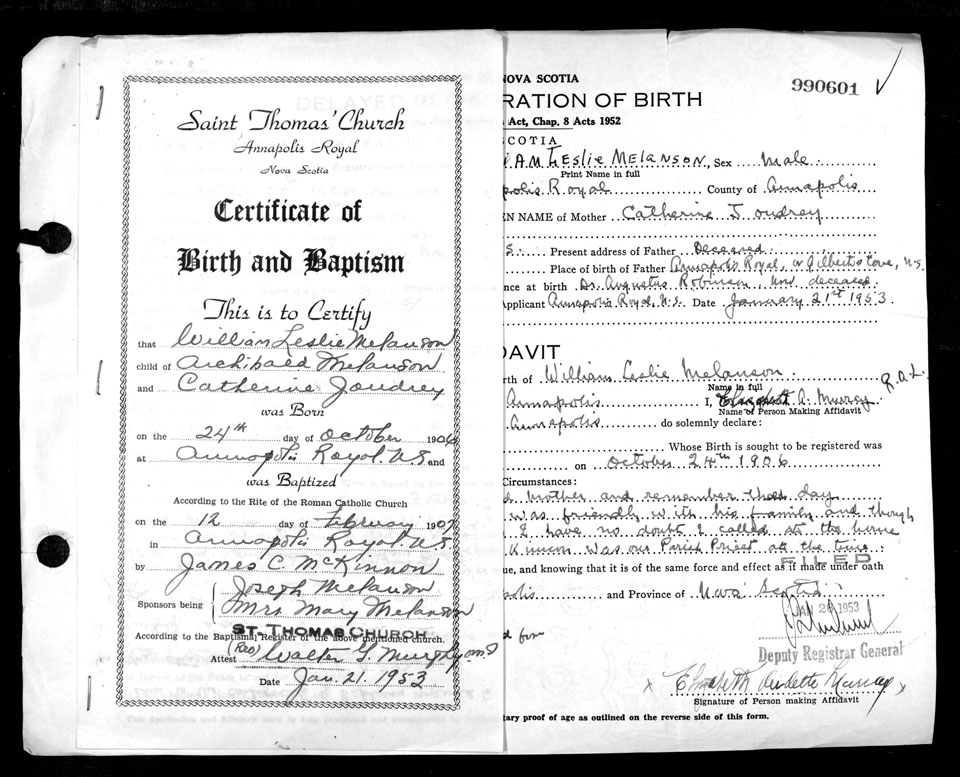 Saint Thomas' Church
Annapolis Royal
Nova Scotia
Certificate of
Birth and Baptism
This is to Certify
that William Leslie Melanson
child of Archibald Melanson
and Catherine Joudrey
was Born
on the 24th day of October 1906
at Annapolis Royal N.S. and
was Baptized
According to the Rite of the Roman Catholic Church
on the 12 day of February 1907
in Annapolis Royal N.S.
by James C. McKinnon
Joseph Melanson
Sponsors being Mrs Mary Melanson
ST. THOMAS CHURCH
According to the Baptismal Register of the above mentioned church.
(Rev) Attest Walter G Murphy
Date Jan. 21. 1953
NOVA SCOTIA
990601
RATION OF BIRTH
Act, Chap. 8 Acts 1952
SCOTIA
IAM LESLIE MELANSON, Sex Male
Print Name in full
polis Royal County of Annapolis
EN NAME of Mother Catherine Joudrey
S. Present address of Father Deceased
Place of birth of Father Annapolis Royal, or Gilberts Cove, N.S.
nce at birth Dr. Augustus Robinson, now deceased
Applicant Annapolis Royal, N.S. Date January 21st 1953
DAVIT
rth of William Leslie Melanson
Name in full
R.A.L.
Annapolis I, Elizabeth A. Murray
Name of Person Making Affidavit
Annapolis do solemnly declare:
Whose Birth is sought to be registered was
on October 24th 1906
Circumstances:
mother and remember that day
was friendly with his family and though
I have no doubt I called at the home
Kinnon was our Parish Priest at the time
FILED
ue, and knowing that it is of the same force and effect as if made under oath
polis and Province of Nova Scotia
JAN 2 1953
d form
Deputy Registrar General
x Elizabeth Murray x
Signature of Person making Affidavit
tary proof of age as outlined on the reverse side of this form.